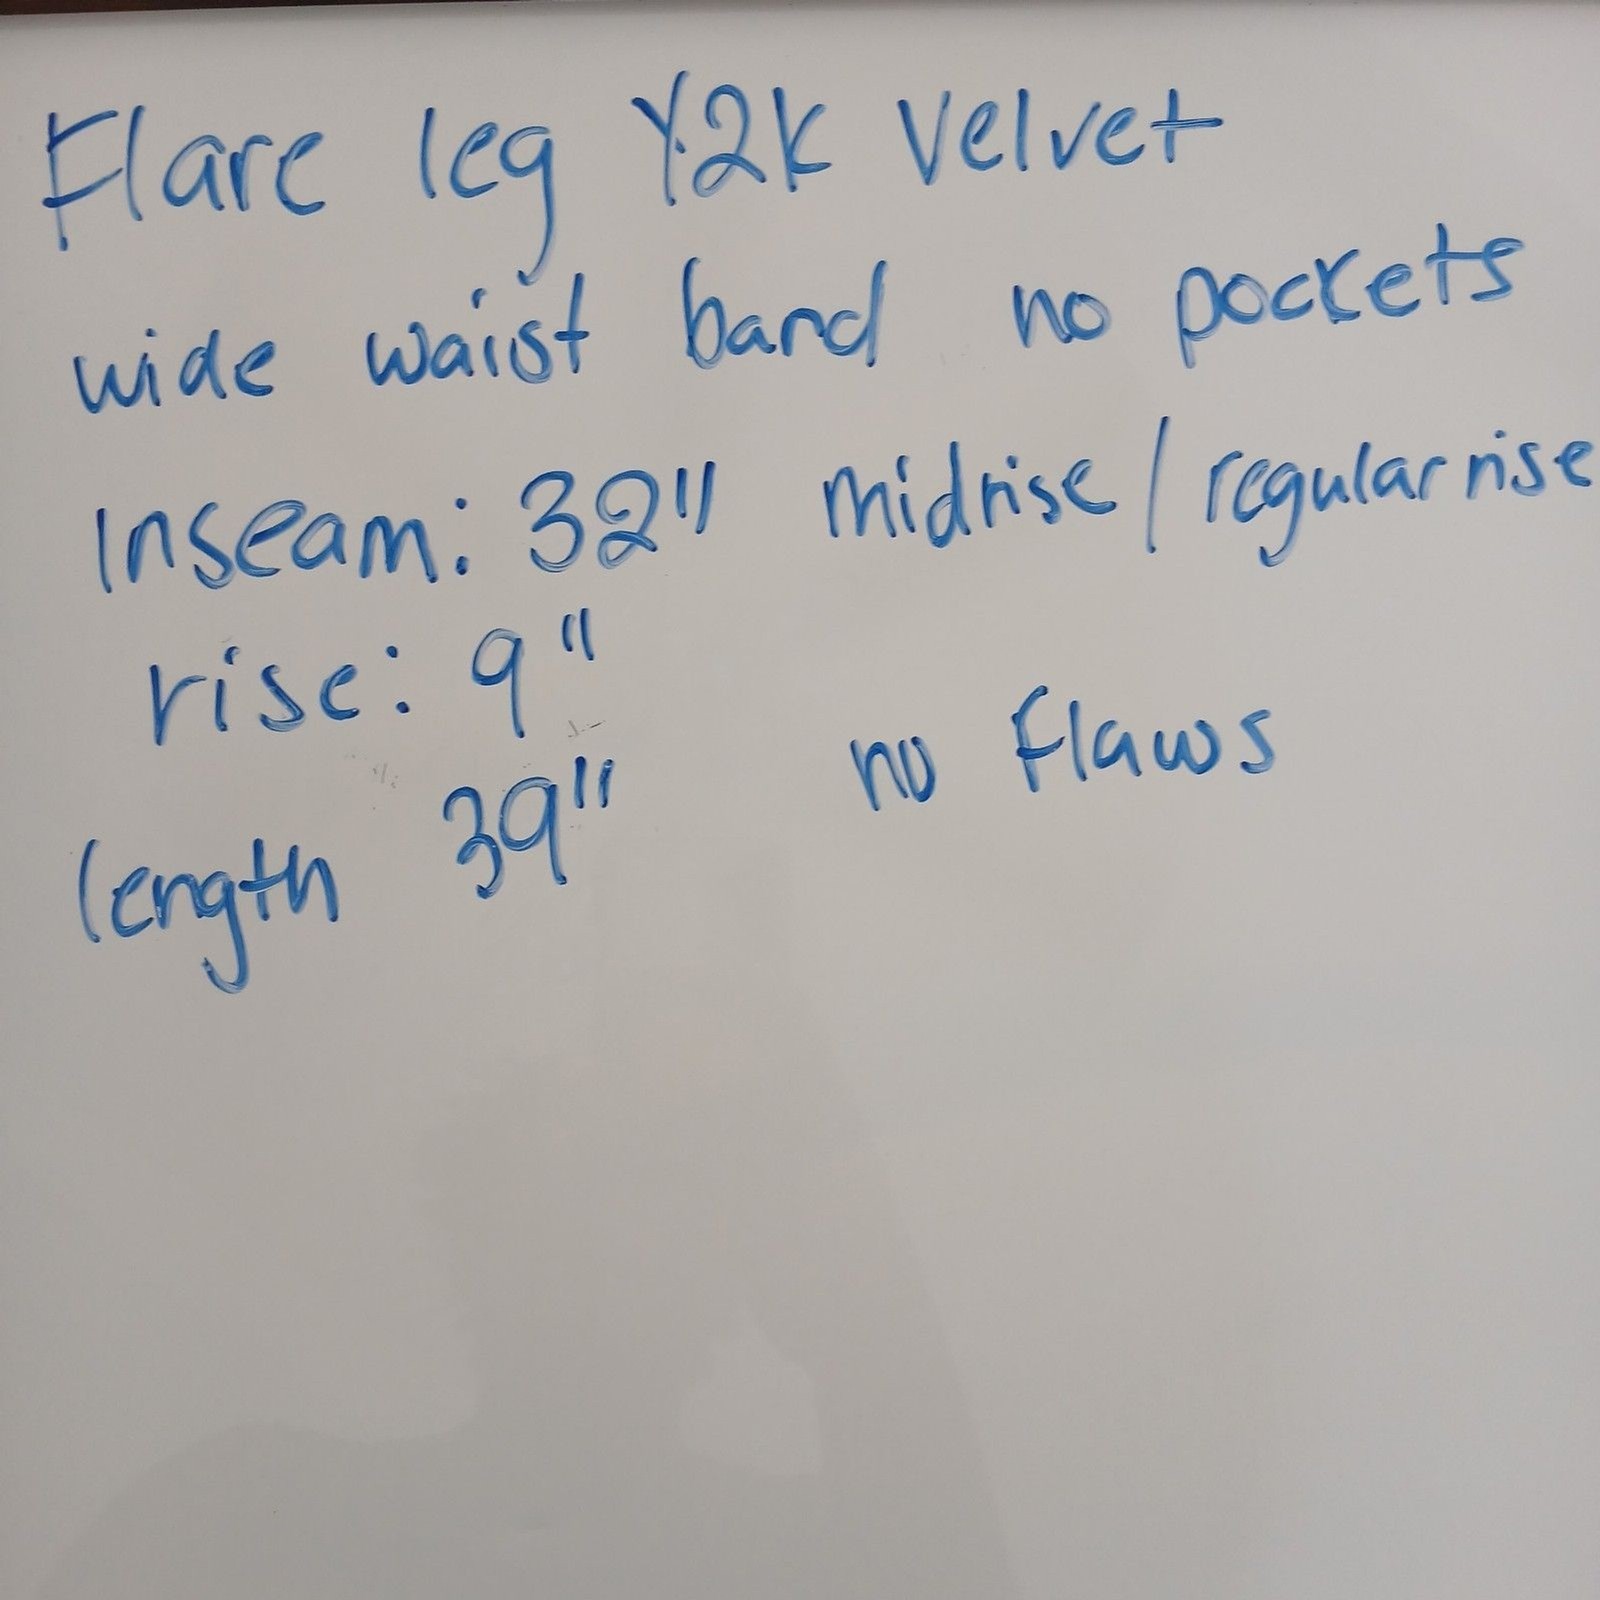 Flare leg Y2K Velvet
wide waist band no pockets
Inseam: 32" midrise / regular rise
rise: 9"
no flaws
length 39"